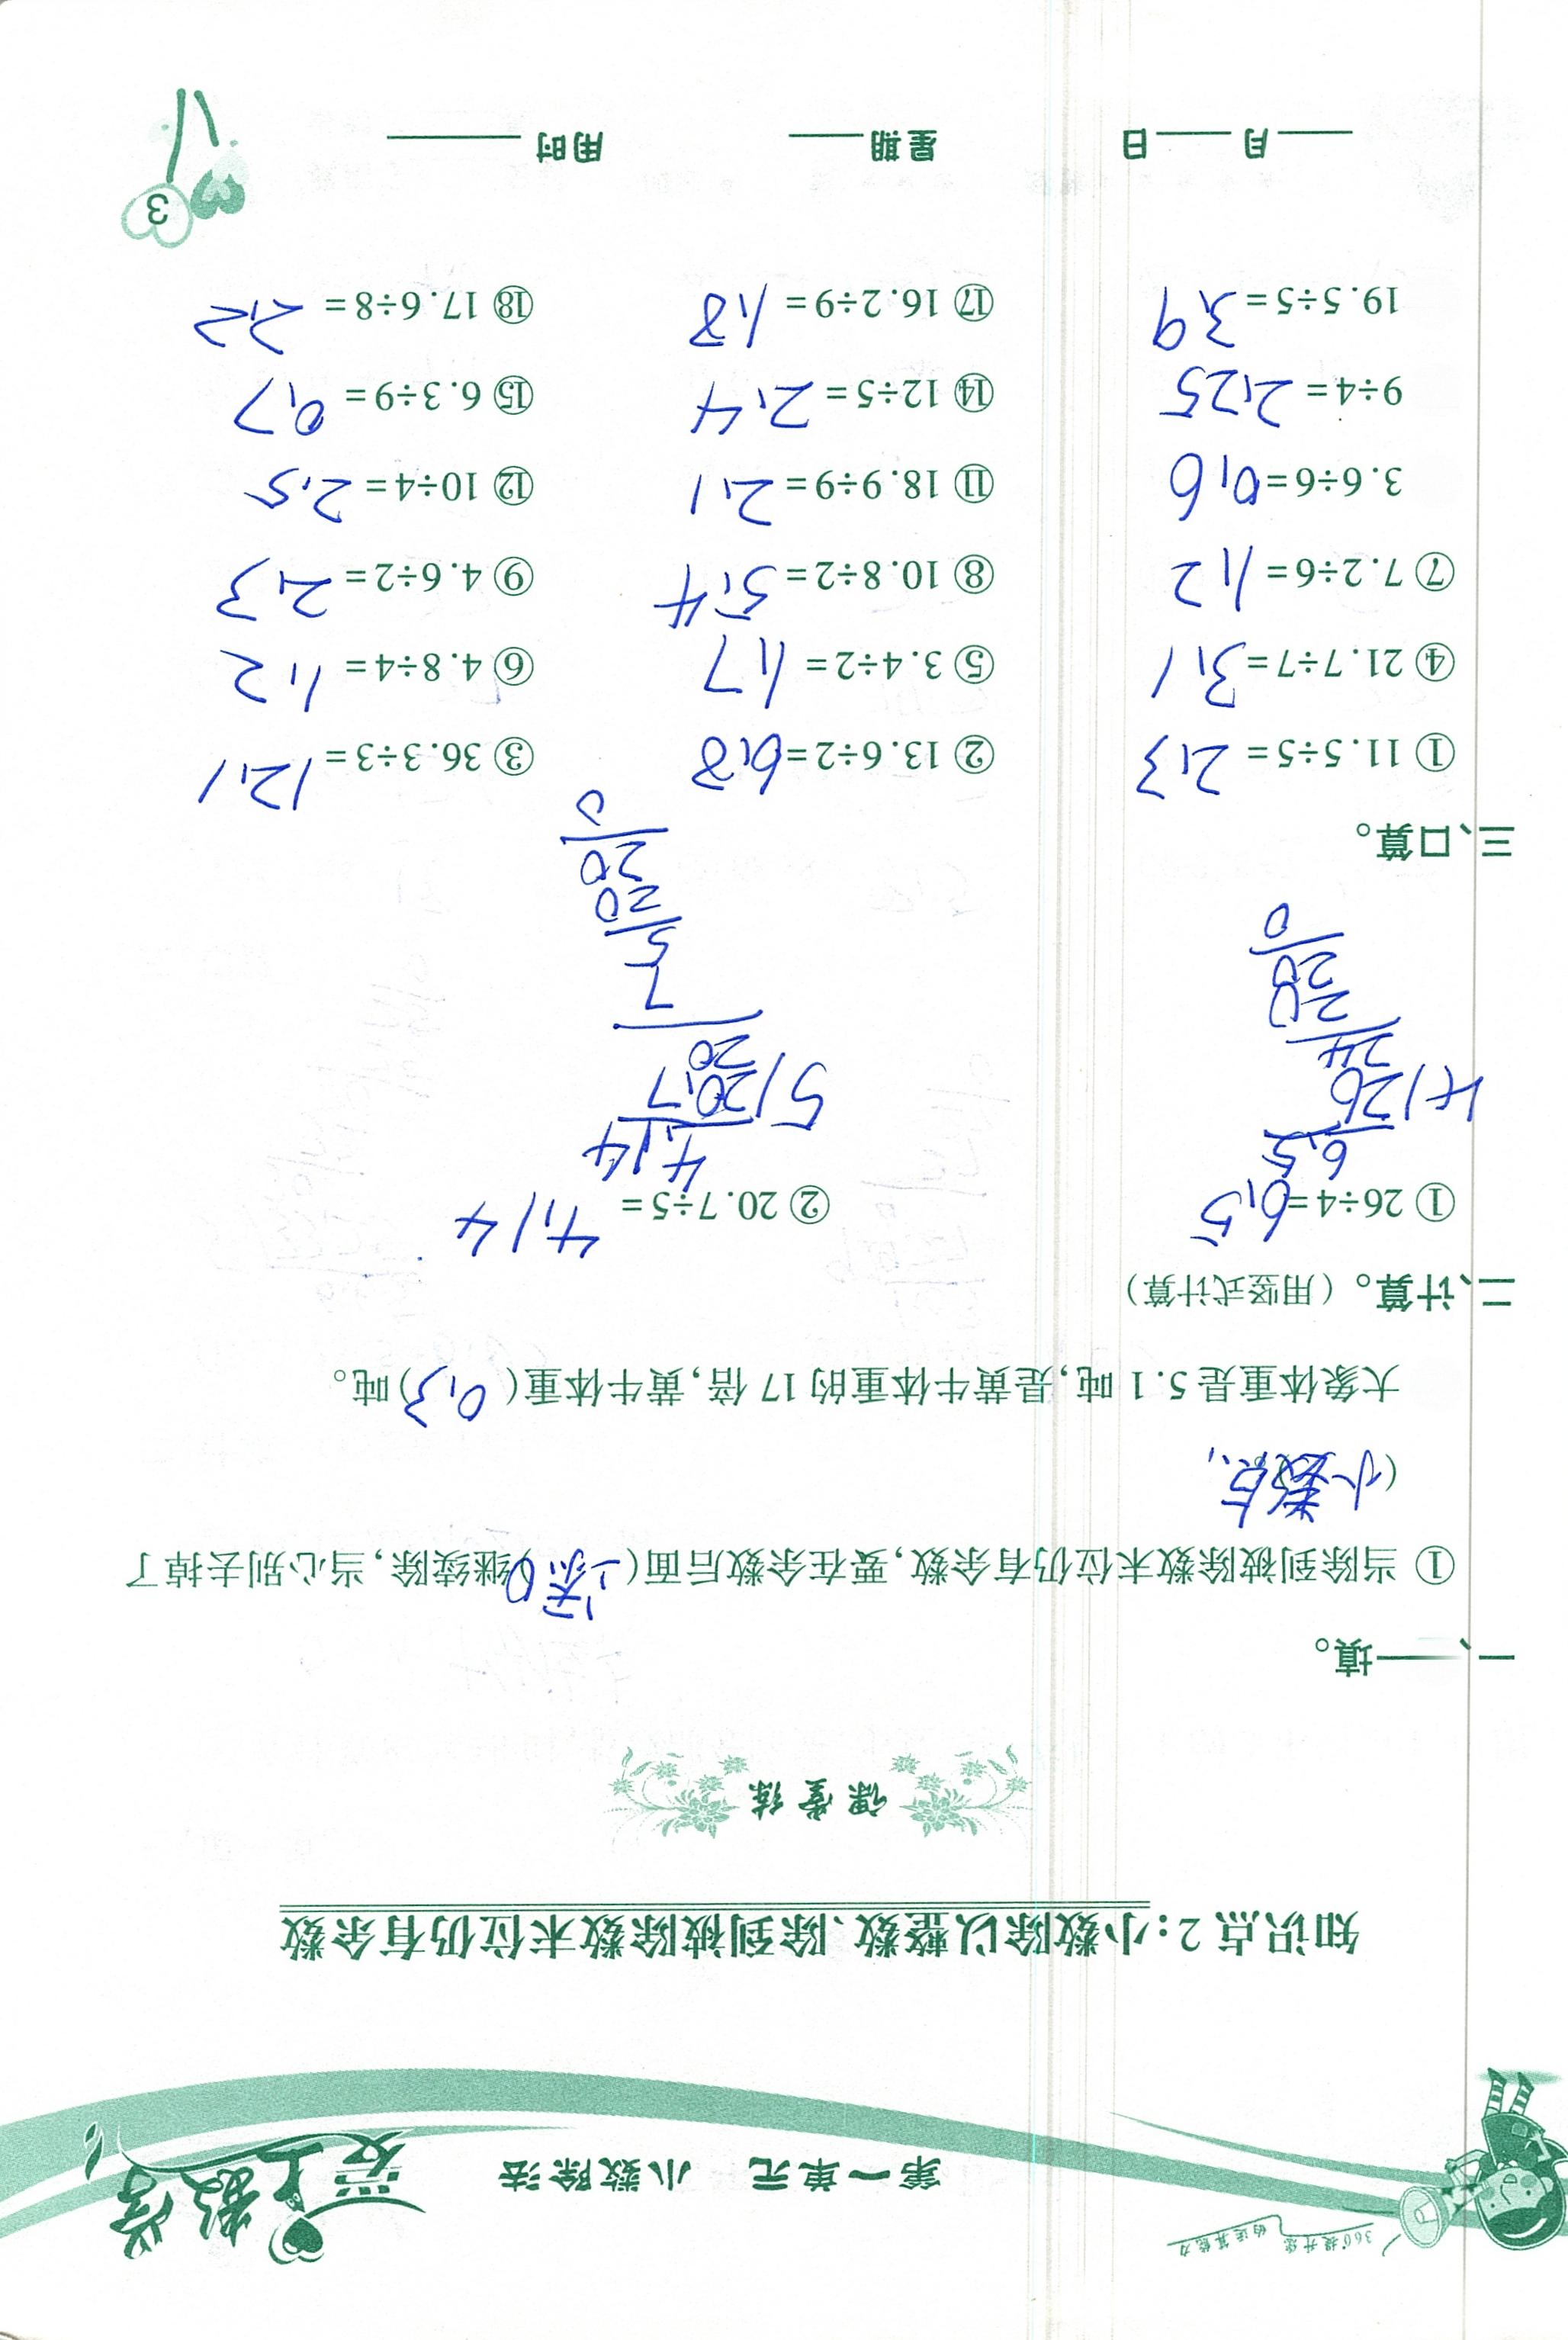 360°提升您的运算能力
第一单元 小数除法
爱上数学
知识点2:小数除以整数、除到被除数末位仍有余数
课堂练
一、填。
① 当除到被除数末位仍有余数,要在余数后面(添0)继续除,当心别去掉了
(小数点)。
大象体重是5.1吨,是黄牛体重的17倍,黄牛体重(0.3)吨。
二、计算。(用竖式计算)
① 26÷4=6.5 ② 20.7÷5= 4.14
6.5
4)26
24
20
20
0
4.14
5)20.7
20
7
5
20
20
0
三、口算。
① 11.5÷5= 2.3 ② 13.6÷2=6.8 ③ 36.3÷3= 12.1
④ 21.7÷7=3.1 ⑤ 3.4÷2= 1.7 ⑥ 4.8÷4= 1.2
⑦ 7.2÷6= 1.2 ⑧ 10.8÷2= 5.4 ⑨ 4.6÷2= 2.3
3.6÷6=0.6 ⑪ 18.9÷9= 2.1 ⑫ 10÷4= 2.5
9÷4= 2.25 ⑭ 12÷5= 2.4 ⑮ 6.3÷9= 0.7
19.5÷5= 3.9 ⑰ 16.2÷9= 1.8 ⑱ 17.6÷8= 2.2
月 日 星期 用时
3